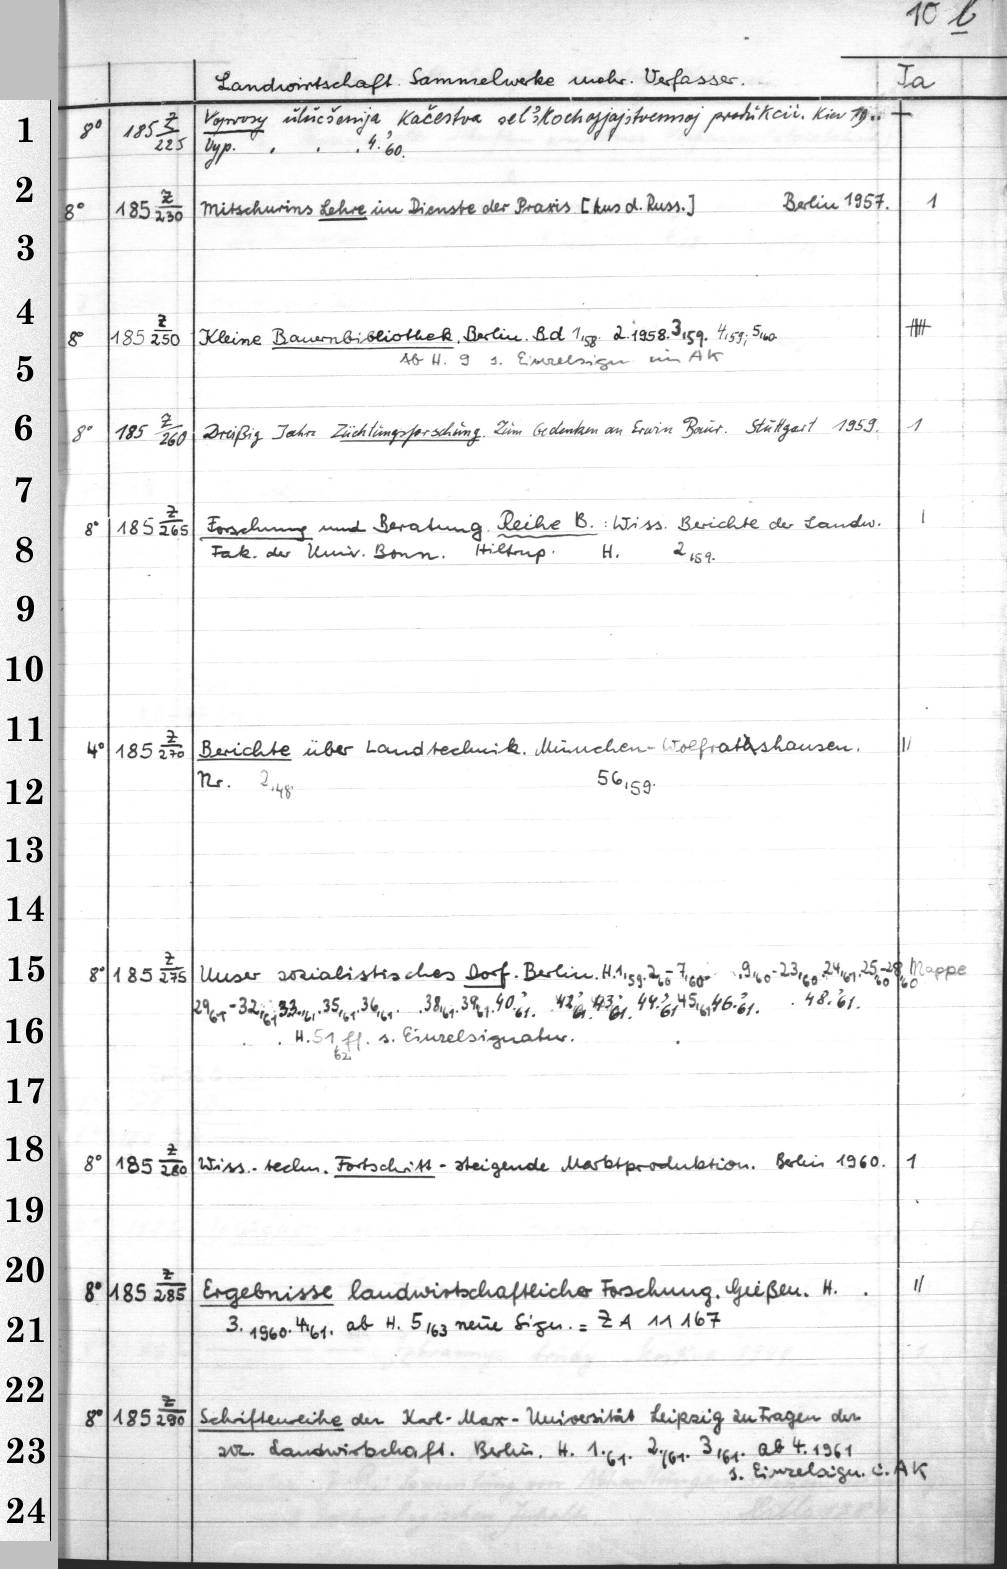 10 b
Landwirtschaft. Sammelwerke mehr. Verfasser. Ia
1 8° 185 Z/225 Voprosy ulučšenija kačestva sel'skochozjajstvennoj produkcii. Kiev 19..
Vyp. . . . 4.'60.
2 8° 185 Z/230 Mitschurins Lehre im Dienste der Praxis [Aus d. Russ.] Berlin 1957. 1
3
4 8° 185 Z/250 Kleine Bauernbibliothek. Berlin. Bd 1,58. 2.1958. 3,59. 4,59; 5,60
5 Ab H. 9 s. Einzelsign im AK
6 8° 185 Z/260 Dreißig Jahre Züchtungsforschung. Zum Gedenken an Erwin Baur. Stuttgart 1959. 1
7
8° 185 Z/265 Forschung und Beratung. Reihe B.: Wiss. Berichte der Landw. |
8 Fak. der Univ. Bonn. Hiltrup. H. 2,59.
9
10
11 4° 185 Z/270 Berichte über Landtechnik. München-Wolfratshausen. ||
12 Nr. 2,48. 56,59.
13
14
15 8° 185 Z/275 Unser sozialistisches Dorf. Berlin. H.1,59. 2,60-7,60. 9,60-23,60. 24,61. 25,60-28,60 Mappe
29,61-32,61. 33,61. 35,61. 36,61. 38,61. 39,61. 40.'61. 42.'61. 43.'61. 44.'61. 45,61. 46.'61. 48.'61.
16 H. 51,62 ff. s. Einzelsignatur.
17
18 8° 185 Z/280 Wiss.-techn. Fortschritt - steigende Marktproduktion. Berlin 1960. 1
19
20 8° 185 Z/285 Ergebnisse landwirtschaftlicher Forschung. Gießen. H. . ||
21 3. 1960. 4,61. ab H. 5,63 neue Sign. = ZA 11 167
22 8° 185 Z/290 Schriftenreihe der Karl-Marx-Universität Leipzig zu Fragen der
23 soz. Landwirtschaft. Berlin. H. 1.,61. 2.,61. 3,61. ab 4.1961
s. Einzelsign. i. AK
24